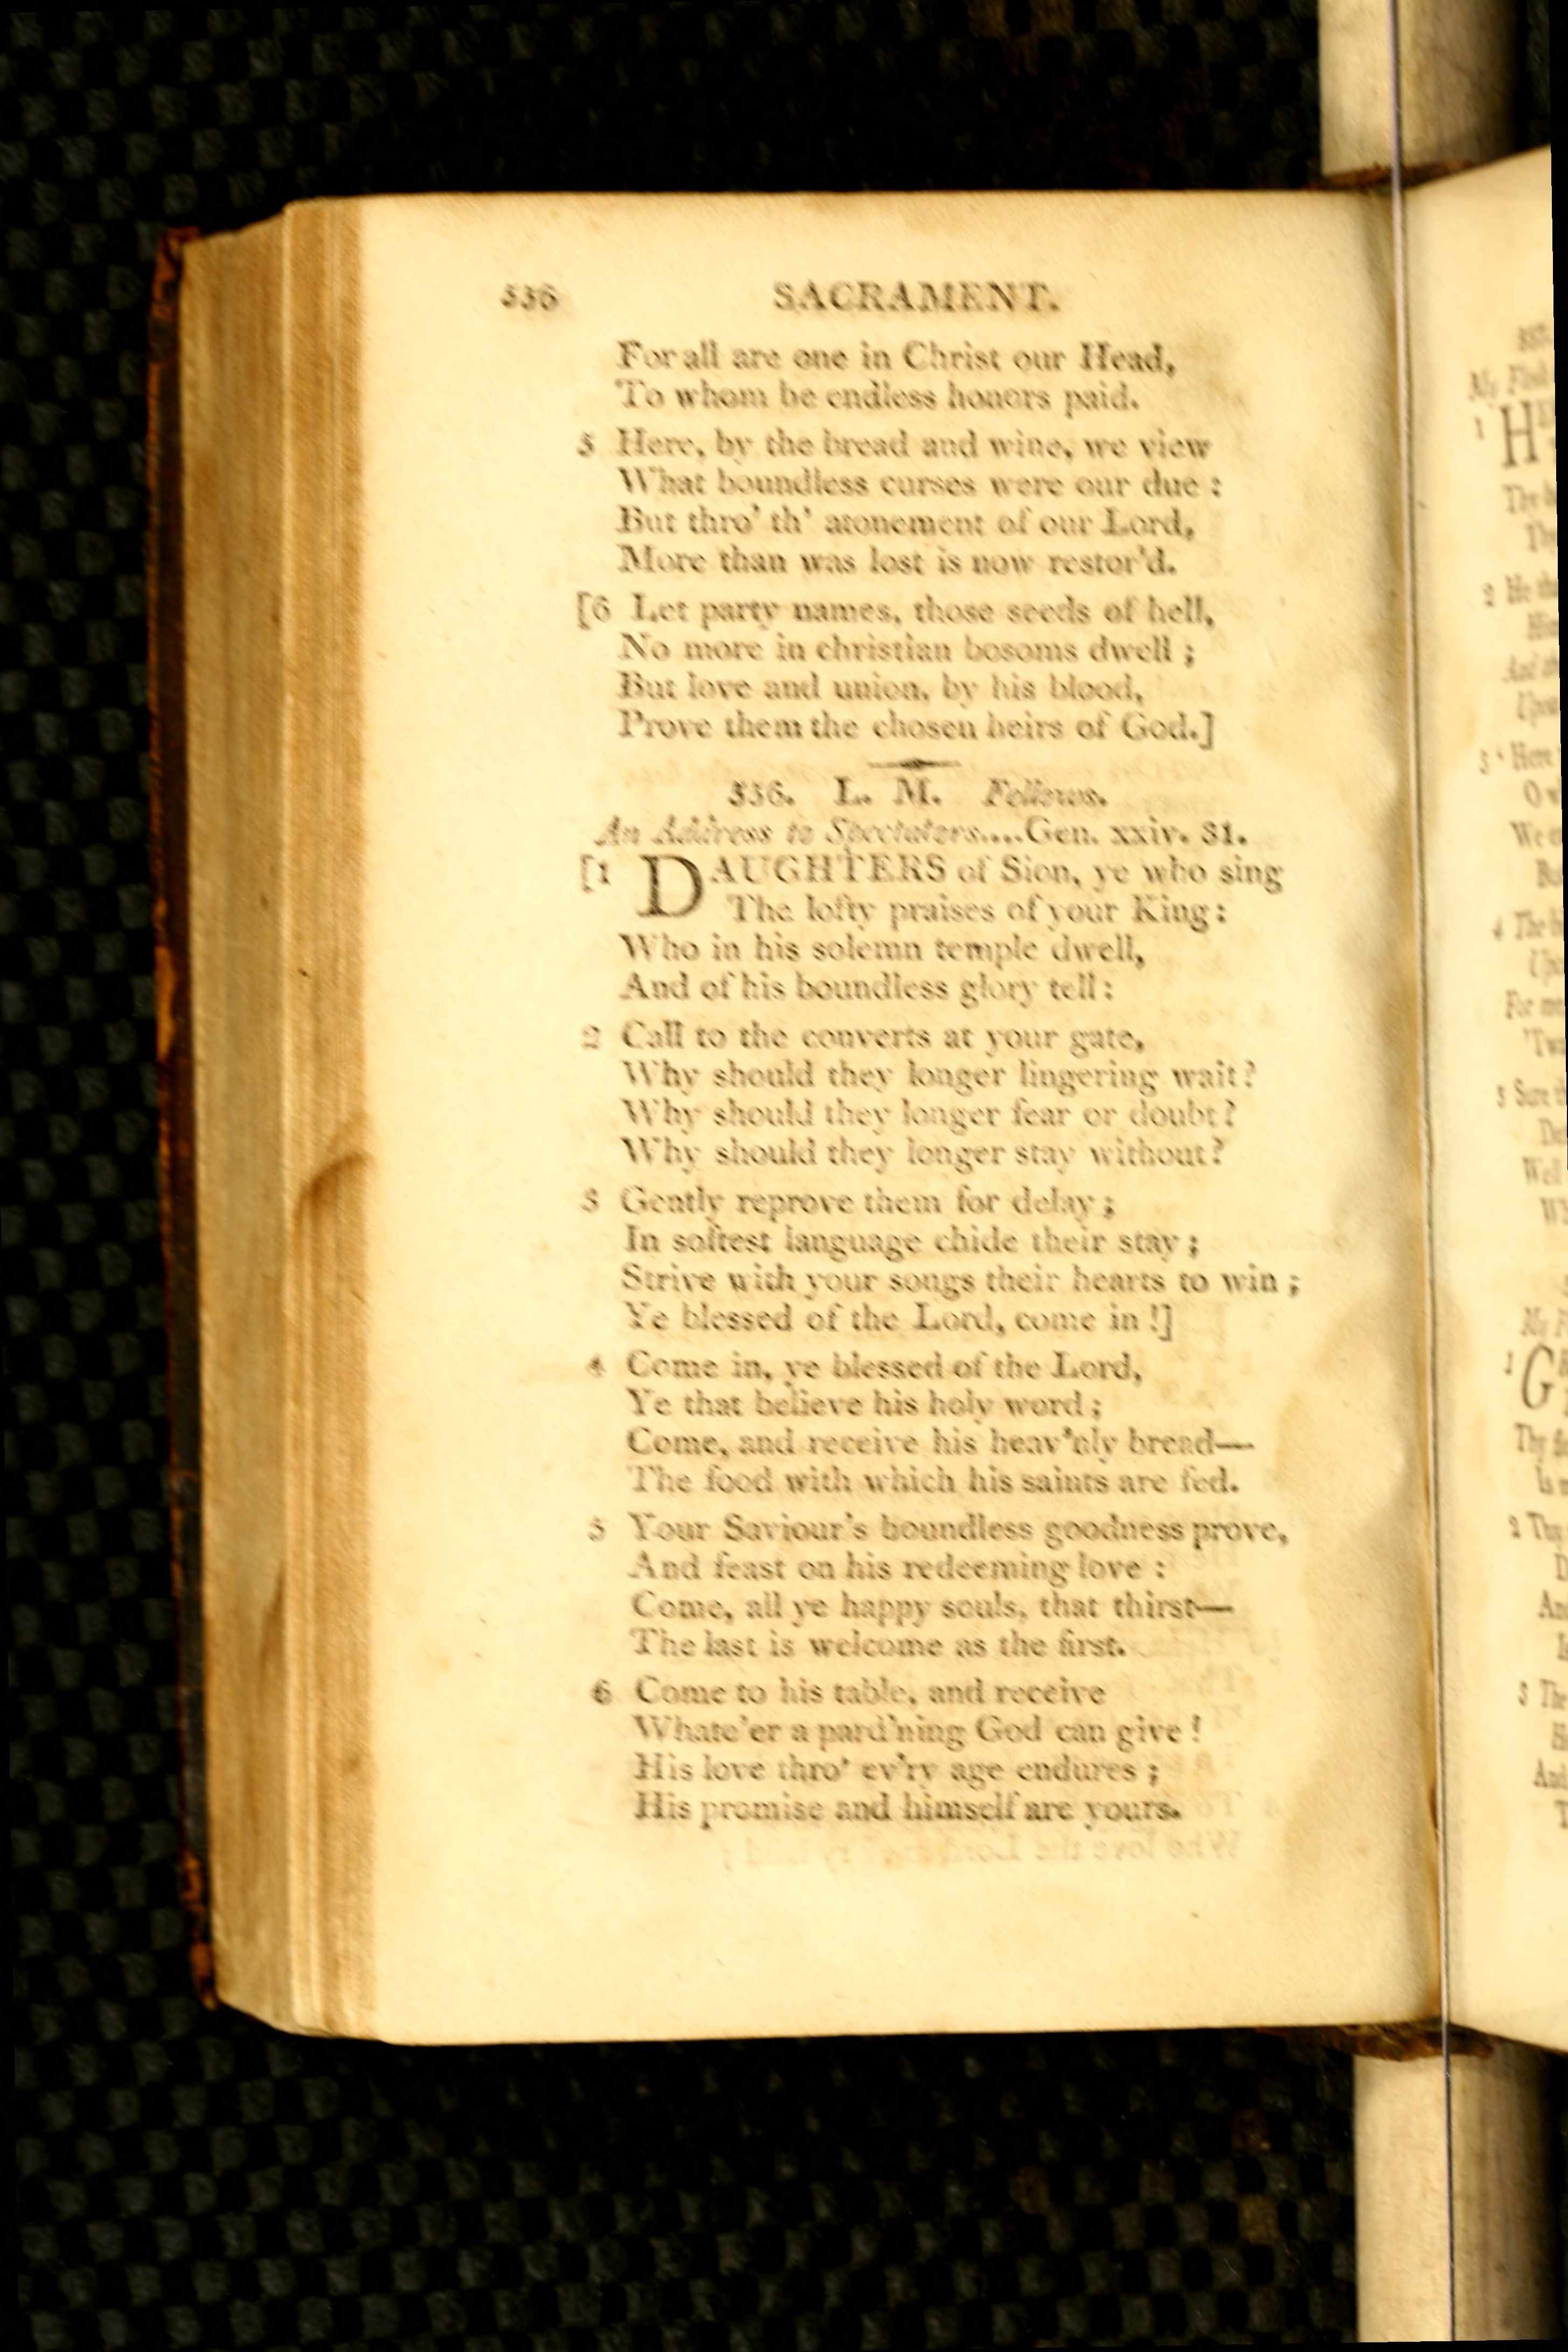 536 SACRAMENT.
For all are one in Christ our Head,
To whom be endless honors paid.
5 Here, by the bread and wine, we view
What boundless curses were our due :
But thro' th' atonement of our Lord,
More than was lost is now restor'd.
[6 Let party names, those seeds of hell,
No more in christian bosoms dwell ;
But love and union, by his blood,
Prove them the chosen heirs of God.]
536. L. M. Fellows.
An Address to Spectators....Gen. xxiv. 31.
[1 DAUGHTERS of Sion, ye who sing
The lofty praises of your King :
Who in his solemn temple dwell,
And of his boundless glory tell :
2 Call to the converts at your gate,
Why should they longer lingering wait?
Why should they longer fear or doubt?
Why should they longer stay without?
3 Gently reprove them for delay ;
In softest language chide their stay ;
Strive with your songs their hearts to win ;
Ye blessed of the Lord, come in !]
4 Come in, ye blessed of the Lord,
Ye that believe his holy word ;
Come, and receive his heav'nly bread—
The food with which his saints are fed.
5 Your Saviour's boundless goodness prove,
And feast on his redeeming love :
Come, all ye happy souls, that thirst—
The last is welcome as the first.
6 Come to his table, and receive
Whate'er a pard'ning God can give !
His love thro' ev'ry age endures ;
His promise and himself are yours.